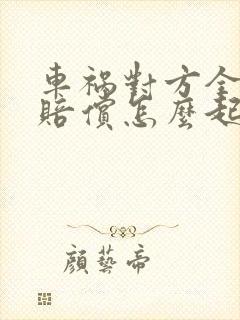 車禍對方全
賠償怎麼起
顏藝帝